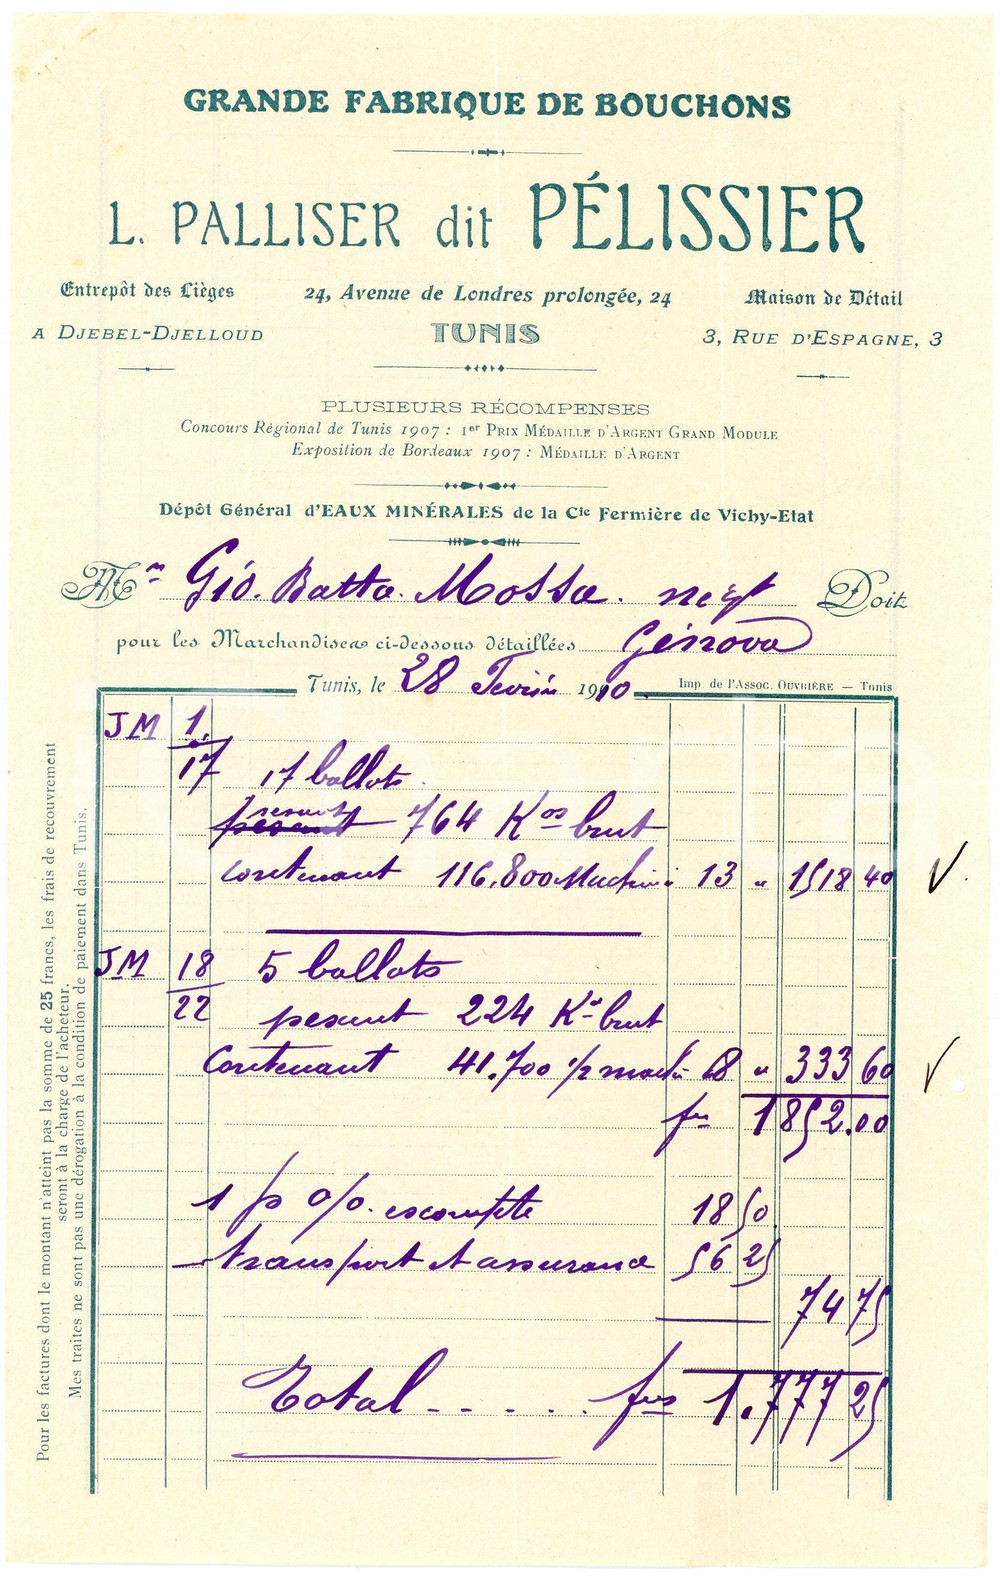 GRANDE FABRIQUE DE BOUCHONS
L. PALLISER dit PÉLISSIER
Entrepôt des Lièges
A DJEBEL-DJELLOUD
24, Avenue de Londres prolongée, 24
TUNIS
Maison de Détail
3, RUE D'ESPAGNE, 3
PLUSIEURS RÉCOMPENSES
Concours Régional de Tunis 1907 : 1er PRIX MÉDAILLE D'ARGENT GRAND MODULE
Exposition de Bordeaux 1907 : MÉDAILLE D'ARGENT
Dépôt Général d'EAUX MINÉRALES de la Cie Fermière de Vichy-Etat
M Gio. Batta. Mossa. Doit
pour les Marchandises ci-dessous détaillées Génova
Tunis, le 28 Février 1910
Imp. de l'Assoc. OUVRIÈRE — Tunis
JM 1. / 17 17 ballots
pesant 764 Kos brut
contenant 116.800 Machine 13 " 1518 40 V
JM 18 / 22 5 ballots
pesant 224 Ko brut
Contenant 41.700 1/2 mach 8 " 333 60 V
frs 1852.00
1 p o/o. escompte 18 50
transport et assurance 56 25
74 75
Total - - . . . . frs 1.777 25
Pour les factures dont le montant n'atteint pas la somme de 25 francs, les frais de recouvrement
seront à la charge de l'acheteur.
Mes traites ne sont pas une dérogation à la condition de paiement dans Tunis.